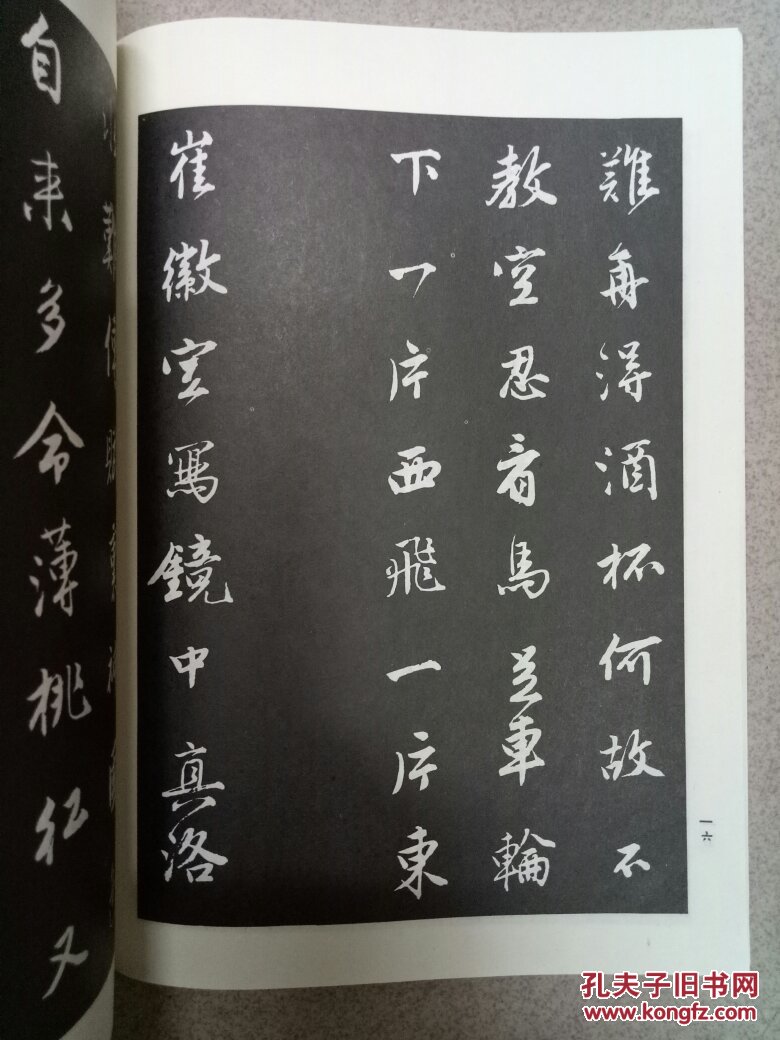 難再得酒杯何故不
教空忍看馬足車輪
下一片西飛一片東
崔徽空寫鏡中真洛
一六
自来多命薄桃紅又
孔夫子旧书网
www.kongfz.com